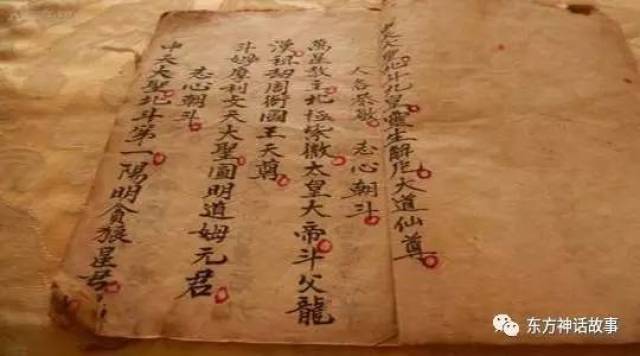 大聖北斗九皇靈生解厄大道仙尊
人各恭敬 志心朝斗
萬星教主北極徽太皇大帝斗父龍
漢祖劫周御國王天
斗姆摩利支天大聖圓明道姆元君
志心朝斗
中天大聖北斗第一陽明貪狼星君
东方神话故事